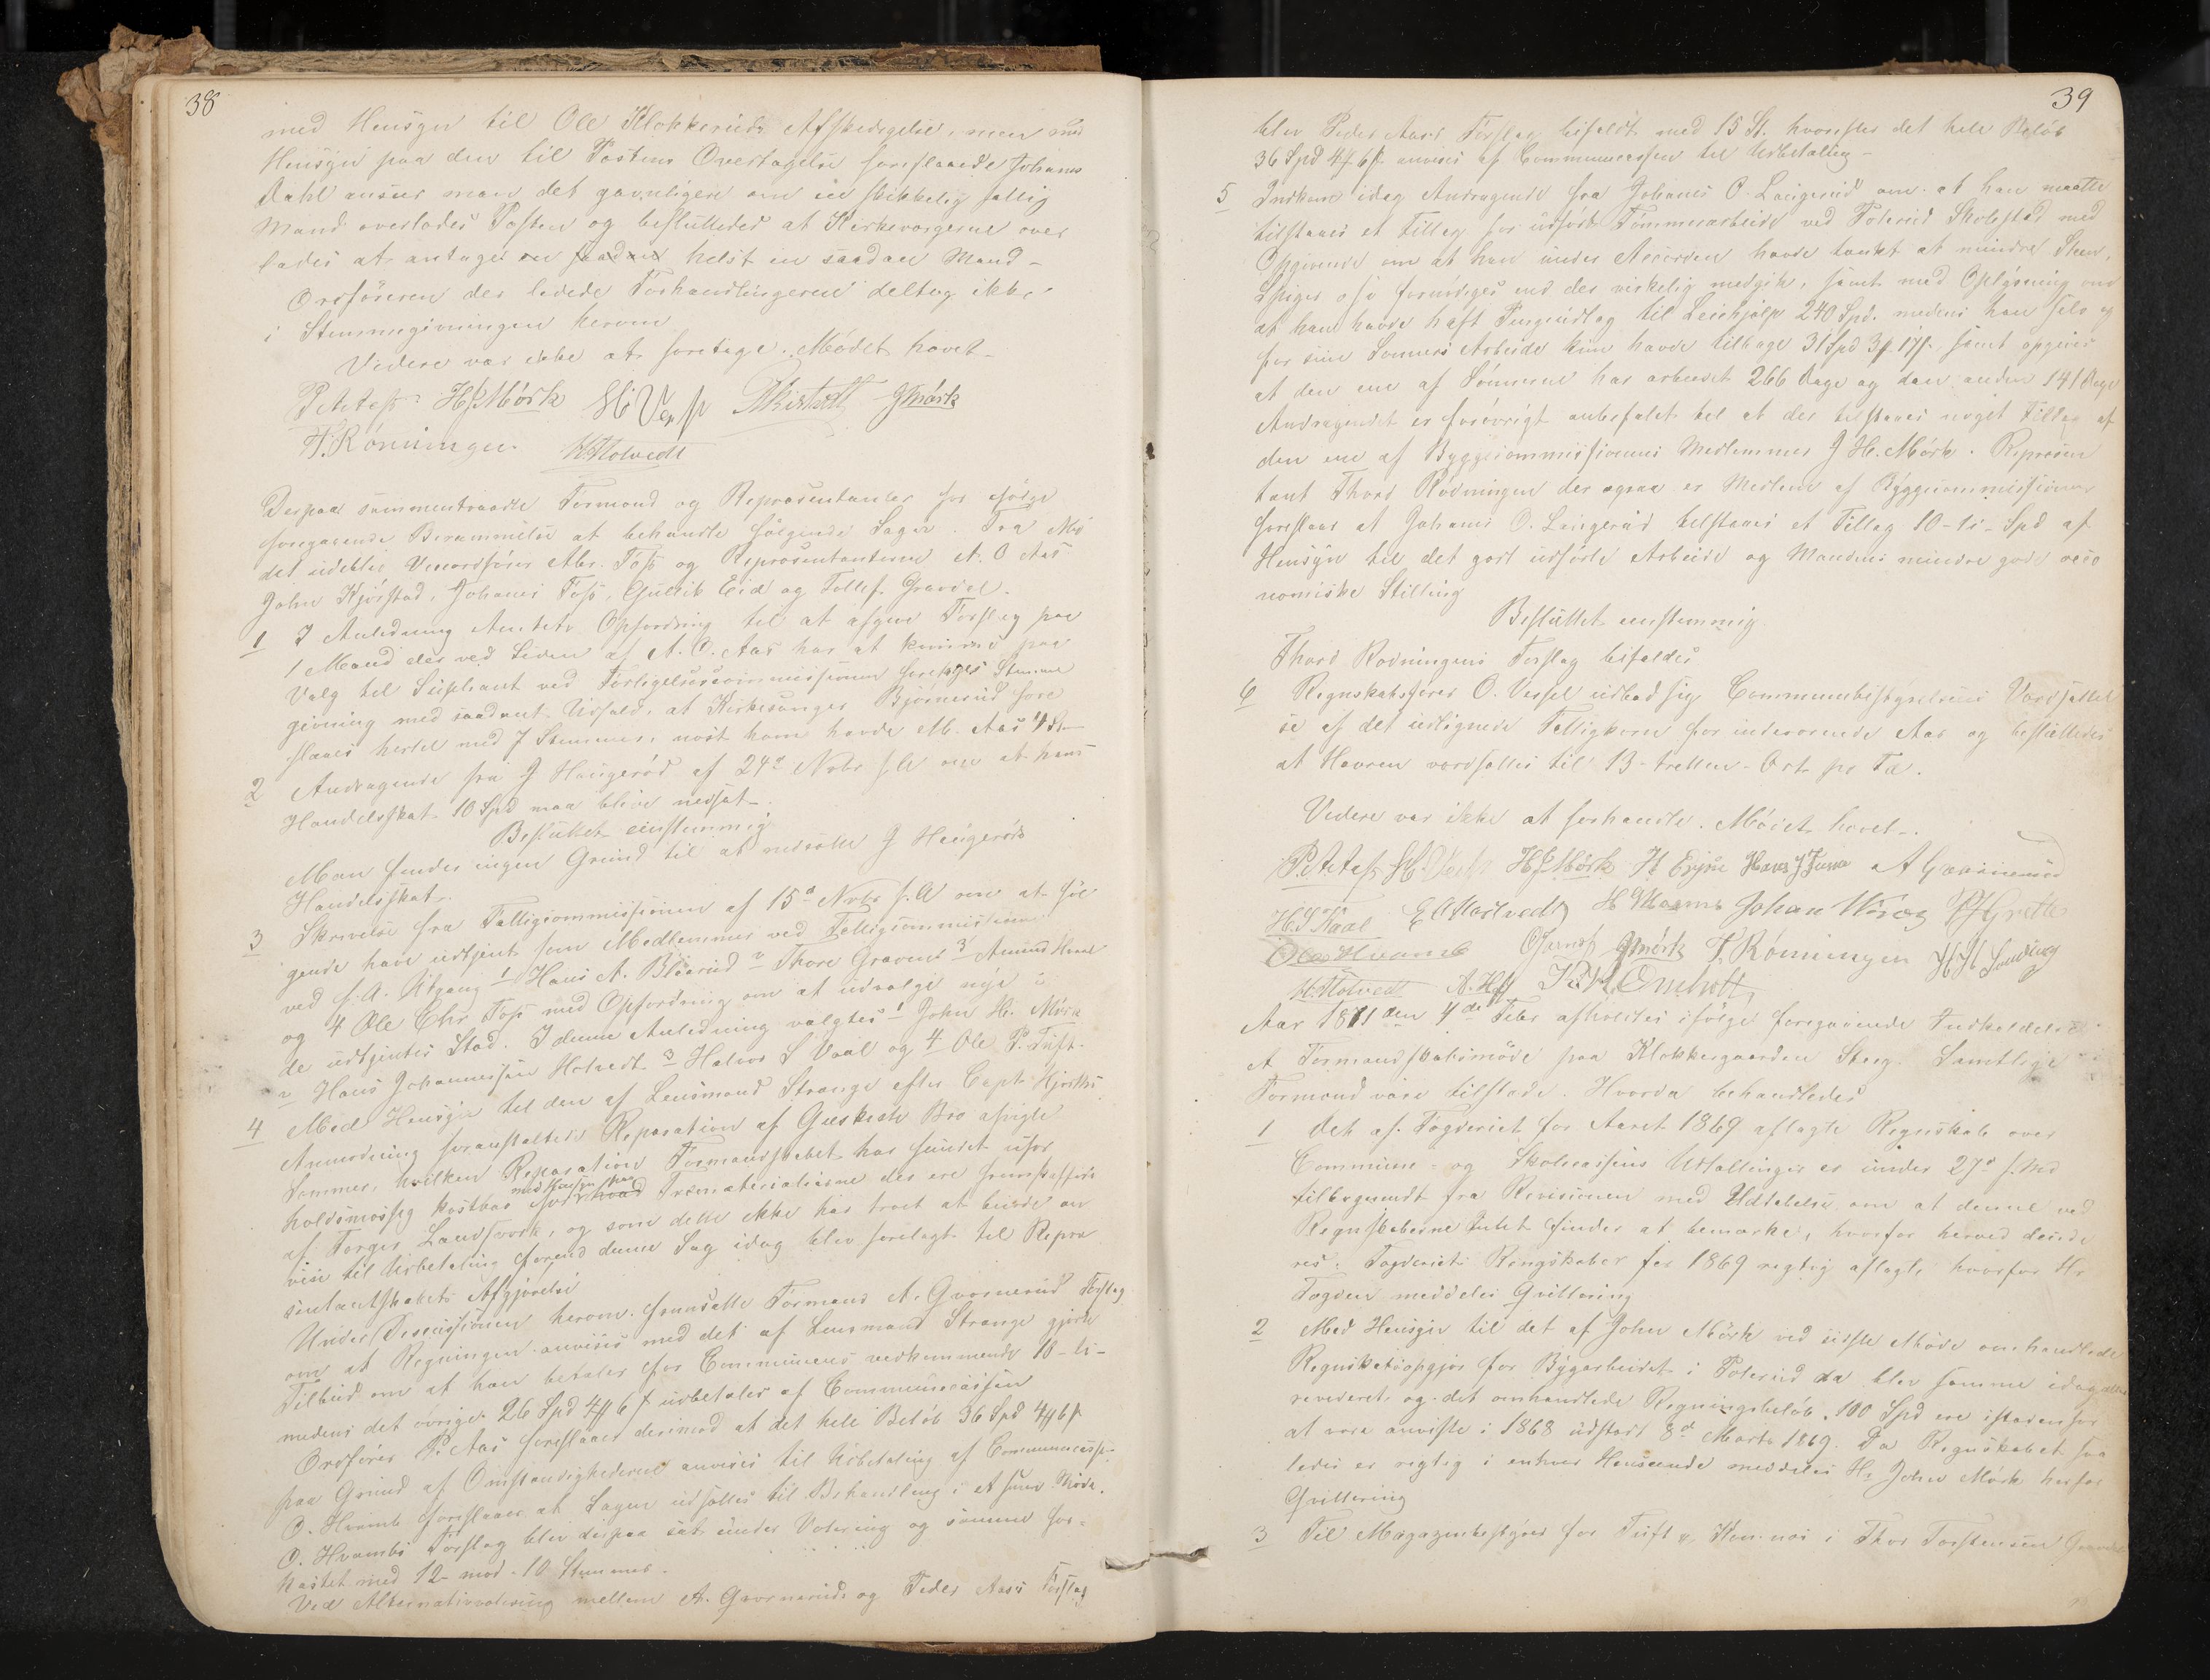 38
med Hensyn til Ole Klokkeruds Afskedigelse, men med
Hensyn paa den til Postens Overtagelse foreslaaede Johannes
Dahl anser man det gavnligere om en skikkelig fattig
Mand overlades Posten og besluttedes at Kirkeværgerne over
lades at antage en saadan helst en saadan Mand –
Ordføreren der ledede Forhandlingerne deltog ikke
i Stemmegivningen herom
Videre var ikke at foretage. Mødet hævet –
P. A. Aass H J Mörk T. Kirstedt J Mörk
T. Rönningen H. Holtvedt
Derpaa sammentraadte Formænd og Repræsentanter for ifølge
foregaaende Berammelse at behandle følgende Sager. Fra Mö
det udeblev Viceordfører Abr. Foss og Repræsentanterne A. O Aas
John Kjörstad, Johannes Foss, Gulleik Eid og Tollef Gravdal.
1 I Anledning Amtets Opfordring til at afgive Forslag paa
1 Mand der ved Siden af A. O. Aas har at komme paa
Valg til Supleant ved Forligelsescommissionen foretoges Stemme
givning med saadant Udfald, at Kirkesanger Björnerud fore
slaaes hertil med 7 Stemmer, næst ham havde M. Aas 4 St.
2 Andragende fra J Haugeröd af 24de Novbr f. A om at hans
Handelsskat 10 Spd maa blive nedsat –
Besluttet eenstemmig
Man finder ingen Grund til at nedsætte J Haugeröds
Handelsskat –
3 Skrivelse fra Fattigcommissionen af 15de Novbr f. A om at føl
gende have udtjent som Medlemmer ved Fattigcommissionen
ved f. A. Udgang 1 Hans A. Blöerud 2 Thore Gravens 3 Amund
og 4 Ole Chr Foss med Opfordring om at udvælge nye i
de udtjentes Sted. I denne Anledning valgtes 1 John H. Mörk
2 Hans Johannessen Holtvedt 3 Halvor S Vaal og 4 Ole P. Tuft.
4 Med Hensyn til den af Lensmand Strange efter Capt. Hjorths
Anmodning foranstaltede Reparation af Bro afvigte
Sommer, hvilken Reparation Formandskabet har fundet ufor
holdsmæssig kostbar med Hensyn paa hvad Træmaterialierne der ere fremskaffede
af Torger Landsværk, og som dette ikke har troet at burde an
vise til Udbetaling førend denne Sag idag blev forelagt til Repræ
sentantskabets Afgjørelse
Under Discussionen herom fremsatte Formand A. Gvarnerud Forslag
om at Regningen anvises med det af Lensmand Strange gjorte
Tilbud om at han betaler for Communens vedkommende 10 – ti –
medens det øvrige 26 Spd 4 # 6 ß udbetales af Communecassen
Ordfører P. Aas foreslaaer derimod at det hele Beløb 36 Spd 4 # 6 ß
paa Grund af Omstændighederne anvises til Udbetaling af Communecassen
O. Hvamb foreslaaer at Sagen udsættes til Behandling i et senere Møde.
O. Hvambs Forslag blev derpaa sat under Votering og samme for-
kastet med 12 mod 10 Stemmer.
Ved Alternativvotering mellem A. Gvarneruds og Peder Aas's Forslag
39
blev Peder Aas's Forslag bifaldt med 15 St. hvorefter det hele Beløb
36 Spd 4 # 6 ß anvises af Communecassen til Udbetaling –
5 Indkom idag Andragende fra Johannes O. Laugerud om at han maatte
tilstaaes et Tillæg for udført Tømmerarbeide ved Poterud Skolested med
Opgivende om at han under Accorden havde tænkt at mindre Steen,
Spiger o s v fornødiges end der virkelig medgik, samt med Oplysning om
at han havde haft Pengeudlæg til Leiehjælp 240 Spd. medens han selv og
for sine Sønners Arbeide kun havde tilbage 31 Spd 3 # 17 ß, samt opgives
at den ene af Sønnerne har arbeidet 266 Dage og den anden 141 Dage
Andragendet er forøvrigt anbefalet til at der tilstaaes noget Tillæg af
den ene af Byggecommissionens Medlemmer J H. Mörk. Repræsen
tant Thord Rødningen der ogsaa er Medlem af Byggecommissionen
foreslaar at Johannes O. Laugerud tilstaaes et Tillæg 10 – ti – Spd af
Hensyn til det godt udførte Arbeide og Mandens mindre gode oeco
nomiske Stilling
Besluttet eenstemmig
Thord Rodningens Forslag bifaldes
6 Regnskabsfører O. Vessel udbad sig Communebestyrelsens Værdsættel
se af det udlignede Fattigkorn for indeværende Aar og besluttedes
at Havren værdsættes til 13 – tretten – Ort pr Tø.
Videre var ikke at forhandle. Mødet hævet –.
P. A. Aass H J Mörk H Hans J A Gvarnerud
H. S Vaal E Mostvedt Johan
Ole Hvamb J Mörk T. Rönningen
H. Holtvedt
Aar 1871 den 4de Febr afholdtes ifølge foregaaende Indkaldelse
et Formandskabsmøde paa Klokkergaarden Steeg. Samtlige
Formænd vare tilstede. Hvorda behandledes
1 Det af Fogderiet for Aaret 1869 aflagte Regnskab over
Commune- og Skolecassens Udtællinger er under 27de f. Md
tilbagesendt fra Revisionen med Udtalelse om at denne ved
Regnskaberne Intet finder at bemærke, hvorfor herved decide
res: Fogderiets Rengskaber for 1869 rigtig aflagte, hvorfor Hr
Fogden meddeles Qvittering
2 Med Hensyn til det af John Mörk ved sidste Møde omhandlede
Regnskabsopgjør for Bygarbeidet i Poterud da blev samme idag
revideret og det omhandlede Regningsbeløb 100 Spd ere istedenfor
at være anviste i 1868 udstædt 8de Marts 1869. Da Regnskabet saa
ledes er rigtig i enhver Henseende meddeles Hr John Mörk herfor
Qvittering
3 Til Magazinbestyrer for Tuft i Thor Torstensen